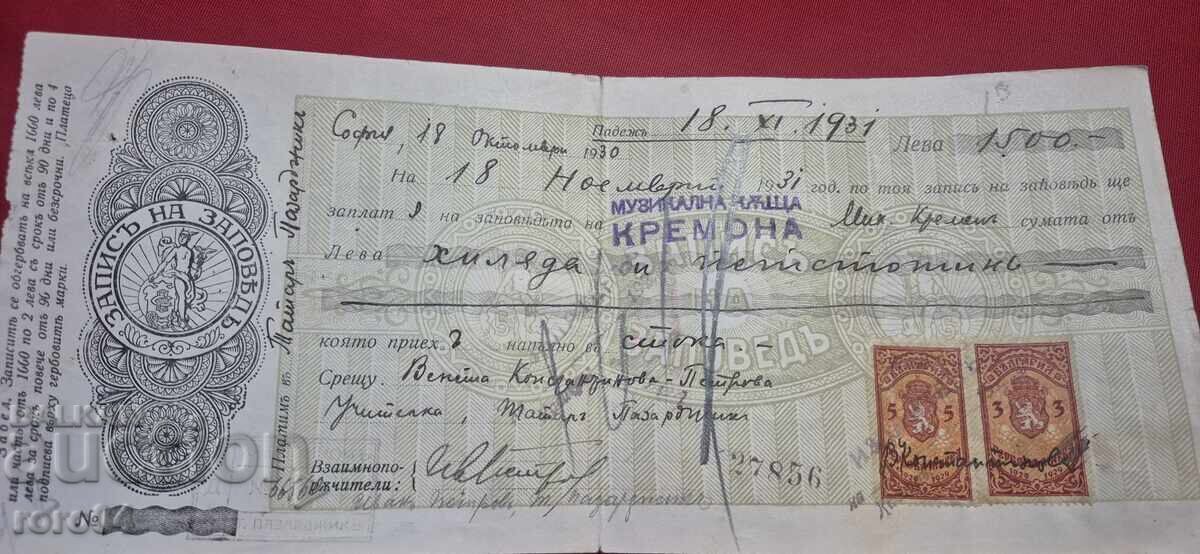 Забел. Записитѣ се обгербватъ на всѣки 1660 лева
или часть отъ 1660 по 2 лева съ срокъ отъ 90 дни и по 4
лева за срокъ повече отъ 96 дни или безсрочни. Платецо
подписва върху гербовитѣ марки.
ЗАПИСЪ НА ЗАПОВѢДЬ
№
Платимъ въ Татаръ Пазарджикъ
София, 18 Октомври 1930
Падежъ 18. XI. 1931
Лева 1500.-
На 18 Ноември 1931 год. по тоя записъ на заповѣдь ще
заплат я на заповѣдьта на МУЗИКАЛНА КѪЩА КРЕМОНА сумата отъ
Лева хиляда и петстотинъ
която приех ъ напълно въ стока -
Срещу Венета Константинова-Петрова
Учителка, Татаръ Пазарджикъ
Взаимнопо-
ръчители:
Петровъ, Т. Пазарджикъ
27856
5 5
3 3
roro14